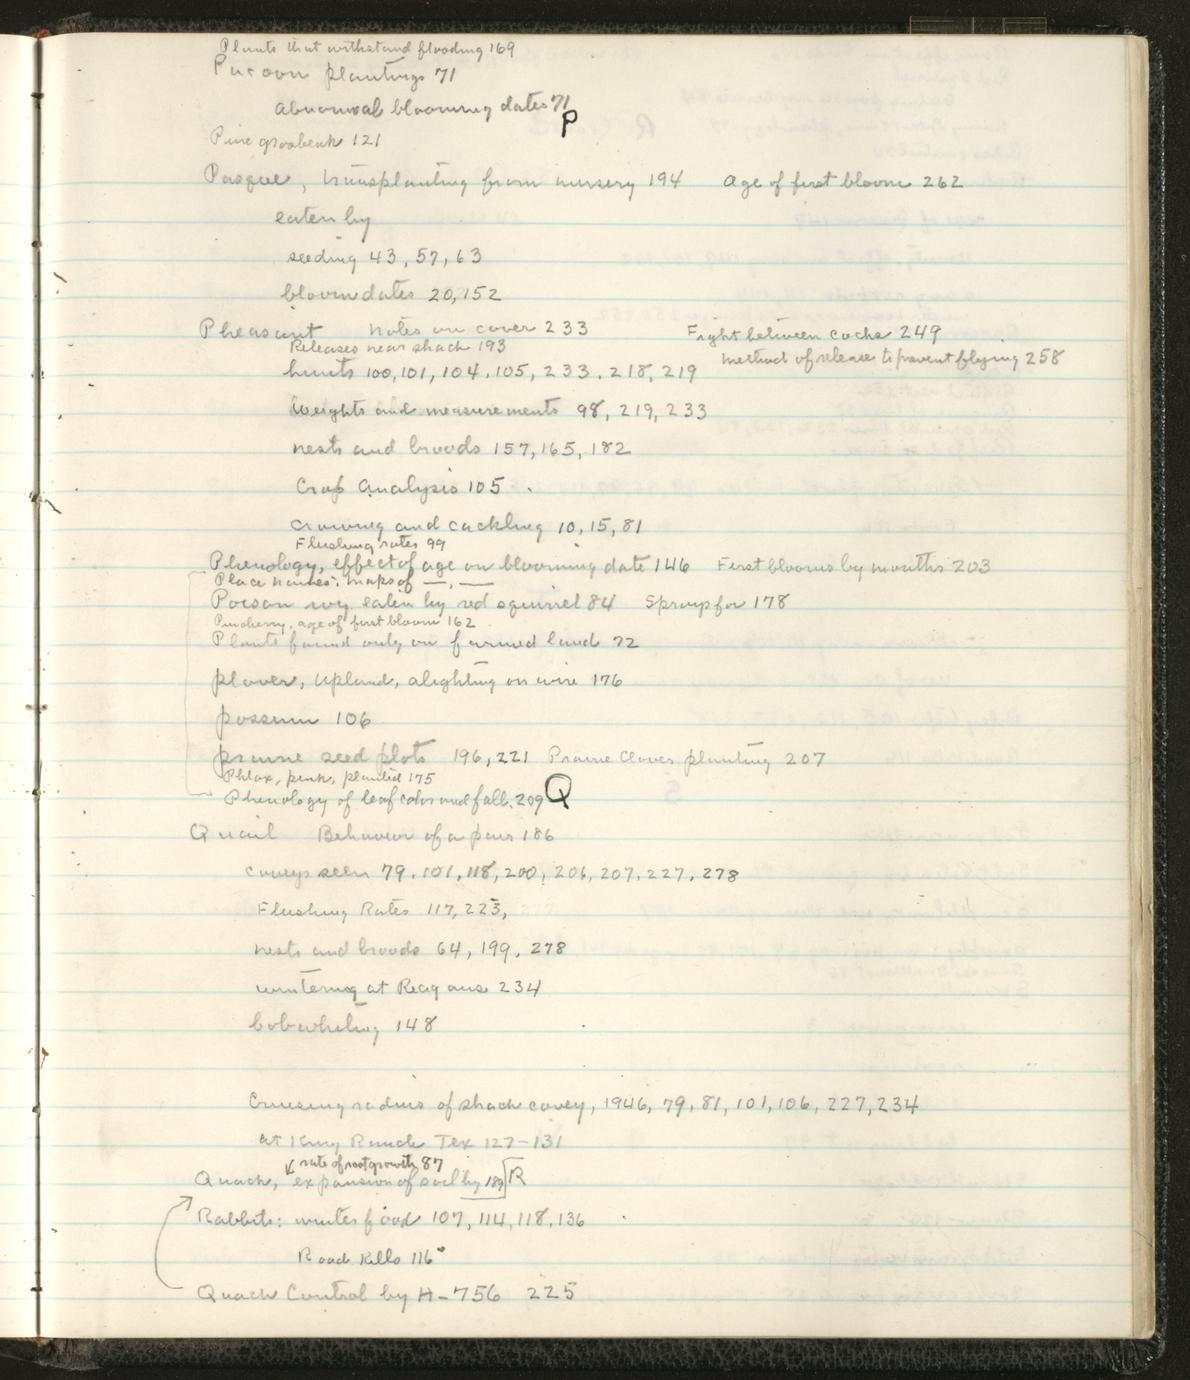 Plants that withstand flooding 169
Pucoon plantings 71
abnormal blooming dates 71
P
Pine grosbeak 121
Pasque, transplanting from nursery 194 Age of first bloom 262
eaten by
seeding 43, 57, 63
bloom dates 20, 152
Pheasant Notes on cover 233 Fight between cocks 249
Releases near shack 193 Method of release to prevent flying 258
hunts 100, 101, 104, 105, 233, 218, 219
Weights and measurements 98, 219, 233
nests and broods 157, 165, 182
Crop Analysis 105
crowing and cackling 10, 15, 81
Flushing rates 99
Phenology, effect of age on blooming date 146 First blooms by months 203
Place names; maps of —, —
Poison ivy eaten by red squirrel 84 Sprays for 178
Pincherry, age of first bloom 162
Plants found only on farmed land 72
plover, Upland, alighting on wire 176
possum 106
prairie seed plots 196, 221 Prairie Clover planting 207
Phlox, pink, planted 175
Phenology of leaf color and fall. 209 Q
Quail Behavior of a pair 186
coveys seen 79, 101, 118, 200, 206, 207, 227, 278
Flushing Rates 117, 223,
nests and broods 64, 199, 278
wintering at Reagans 234
bobwhiting 148
Cruising radius of shack covey, 1946, 79, 81, 101, 106, 227, 234
at King Ranch Tex 127-131
rate of root growth 87
Quack, expansion of sod by 189 R
Rabbits: winter food 107, 114, 118, 136
Road Kills 116
Quack Control by H-756 225